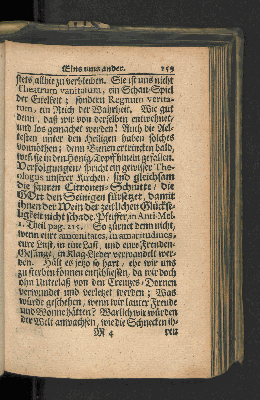 Eins ums ander. 159
stets allhie zu verbleiben. Sie ist uns nicht
Theatrum vanitatum, ein Schau-Spiel
der Eitelkeit; sondern Regnum verita-
tum, ein Reich der Wahrheit. Wie gut
denn, daß wir von derselben entwehnet
und los gemachet werden! Auch die Ael-
testen unter den Heiligen haben solches
vonnöthen; denn Bienen ertrincken bald,
weñ sie in den Honig-Topff hinein gefallen.
Verfolgungen/ spricht ein gewisser Theo-
logus unserer Kirchen, sind gleichsam
die sauren Citronen-Schnitte, die
GOtt den Seinigen fürsetzet, damit
ihnen der Wein der zeitlichen Glückse-
ligkeit nicht schade. Pfeiffer, in Anti-Mel.
1. Theil pag. 215. So zürnet denn nicht,
wenn eure amoenitates, in amaritudines,
eure Lust, in eine Last, und eure Freuden-
Gesänge, in Klag-Lieder verwandelt wer-
den. Hält es jetzo so hart, ehe wir uns
zu sterben können entschliessen, da wir doch
ohn Unterlaß von den Creutzes-Dornen
verwundet und verletzet werden; Was
würde geschehen, wenn wir lauter Freude
und Wonne hätten? Warlich wir würden
der Welt anwachsen, wie die Schnecken ih-
M 4 ren